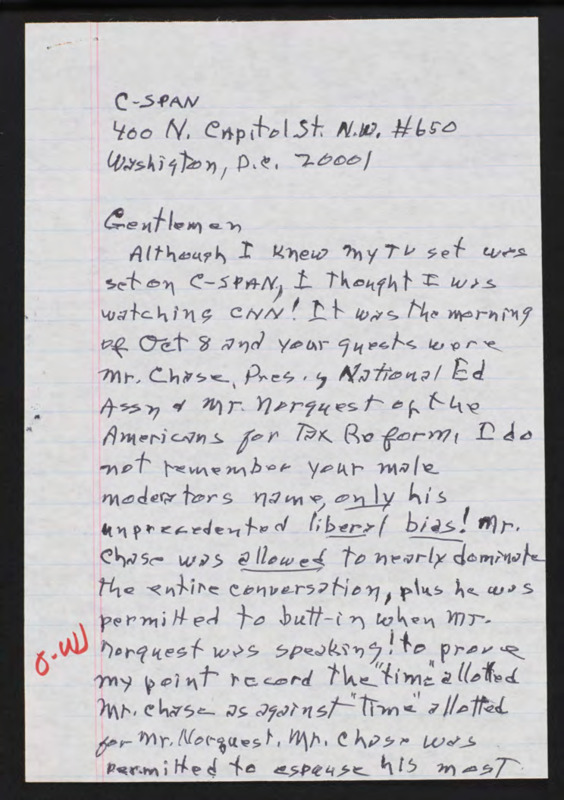 C-SPAN
400 N. Capitol St. N.W. #650
Washigton, D.C. 20001
Gentlemen
Although I knew my TV set was
set on C-SPAN, I thought I was
watching CNN! It was the morning
of Oct 8 and your guests were
Mr. Chase, Pres. of National Ed
Assn & Mr. Norquest of the
Americans for Tax Reform, I do
not remember your male
moderators name, only his
unprecedented liberal bias! Mr.
Chase was allowed to nearly dominate
the entire conversation, plus he was
permitted to butt-in when Mr.
Norquest was speaking! to prove
my point record the "time" allotted
Mr. Chase as against "time" allotted
for Mr. Norquest. Mr. Chase was
permitted to espouse his most
O-W